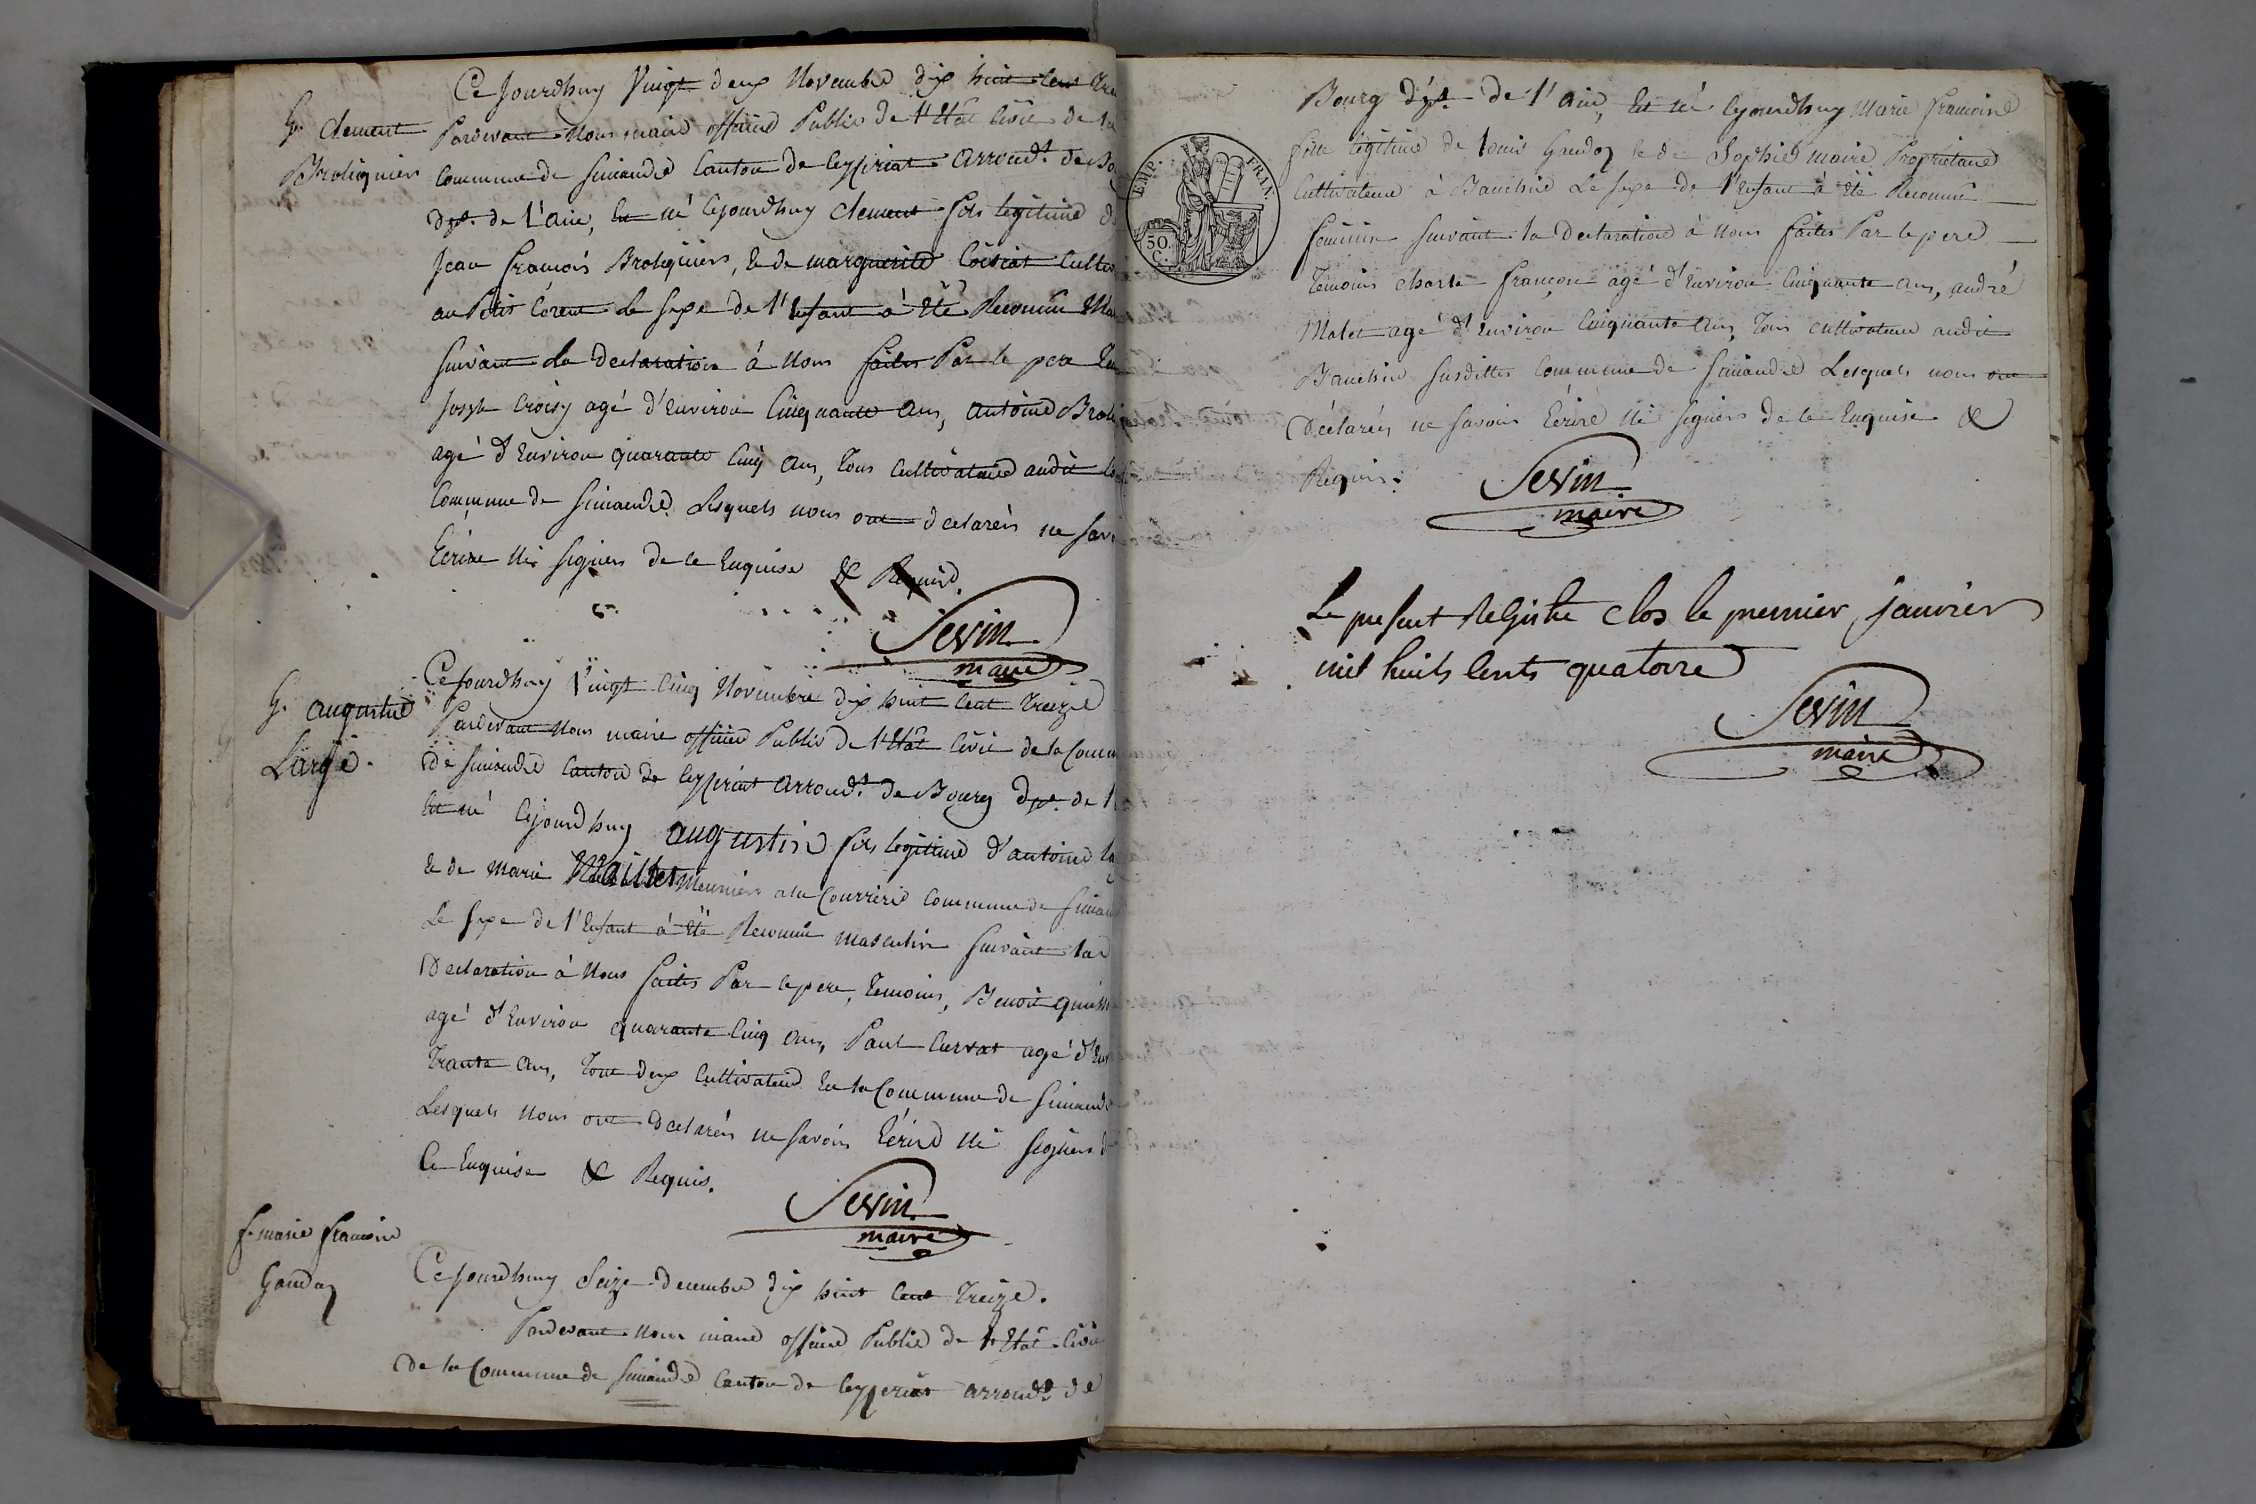 G. Clement
Broliquier
Ce jourdhuy Vingt deux Novembre dix huit cent
Pardevant Nous maire officier Public de l'Etat Civil de la
Commune de Simandre Canton de Ceyzeriat Arrond.t de
Dpt. de l'ain, Est né cejourdhuy Clement fils legitime
Jean François Broliquier, & de marguerite Coisiat
au Petit Corent Le sexe de l'Enfant à Eté Reconnu
Suivant La Declaration à Nous faites Par le pere
Joseph Croisy agé d'Environ Cinquante Ans, Antoine
agé d'Environ quarante Cinq Ans, Tous Cultivateurs audit
Commune de Simandre Lesquels nous ont declarés ne
Ecrire Ni Signer de Ce Enquise & Requis.
Sevin
maire
G. augustin
Large.
Ce jourdhuy Vingt Cinq Novembre dix huit Cent Treize
Pardevant Nous maire officier Public de l'Etat Civil de la
de Simandre Canton de Ceyzeriat Arrond.t de Bourg Dpt. de
Est né Cejourdhuy augustin fils legitime d'antoine
& de Marie Maillet Meunier a la Courrerie Commune de
Le Sexe de l'Enfant à Eté Reconnu masculin Suivant la
Declaration à Nous faites Par le pere, Temoins, Benoit
agé d'Environ quarante Cinq Ans, Paul Curvat agé
Trante Ans, Tout deux Cultivateurs En la Commune de
Lesquels Nous ont declarés ne Savoir Ecrire Ni Signer
Ce Enquise & Requis.
Sevin
maire
f. marie françoise
Gandoz
Ce jourdhuy Seize decembre dix huit Cent Treize.
Pardevant Nous maire officier Public de l'Etat Civil
De la Commune de Simandre Canton de Ceyzeriat arrond.t de
EMP. FRAN.
50. C.
Bourg dpt. de l'ain, Est né Cejourdhuy Marie françoise
fille legitime de Louis Gandoz & de Sophie maire Proprietaire
Cultivateur à Banchin Le Sexe de l'Enfant à Eté Reconnu
feminin Suivant la Declaration à Nous faites Par le pere
Temoins Charle françois agé d'Environ Cinquante ans, andré
Malet agé d'Environ Cinquante Ans, Tous Cultivateurs audit
Banchin Susditte Commune de Simandre Lesquels nous ont
Déclarés ne Savoir Ecrire Ni Signer de Ce Enquise &
Requis.
Sevin
maire
Le present Registre clos le premier janvier
mil huits Cents quatorze
Sevin
maire